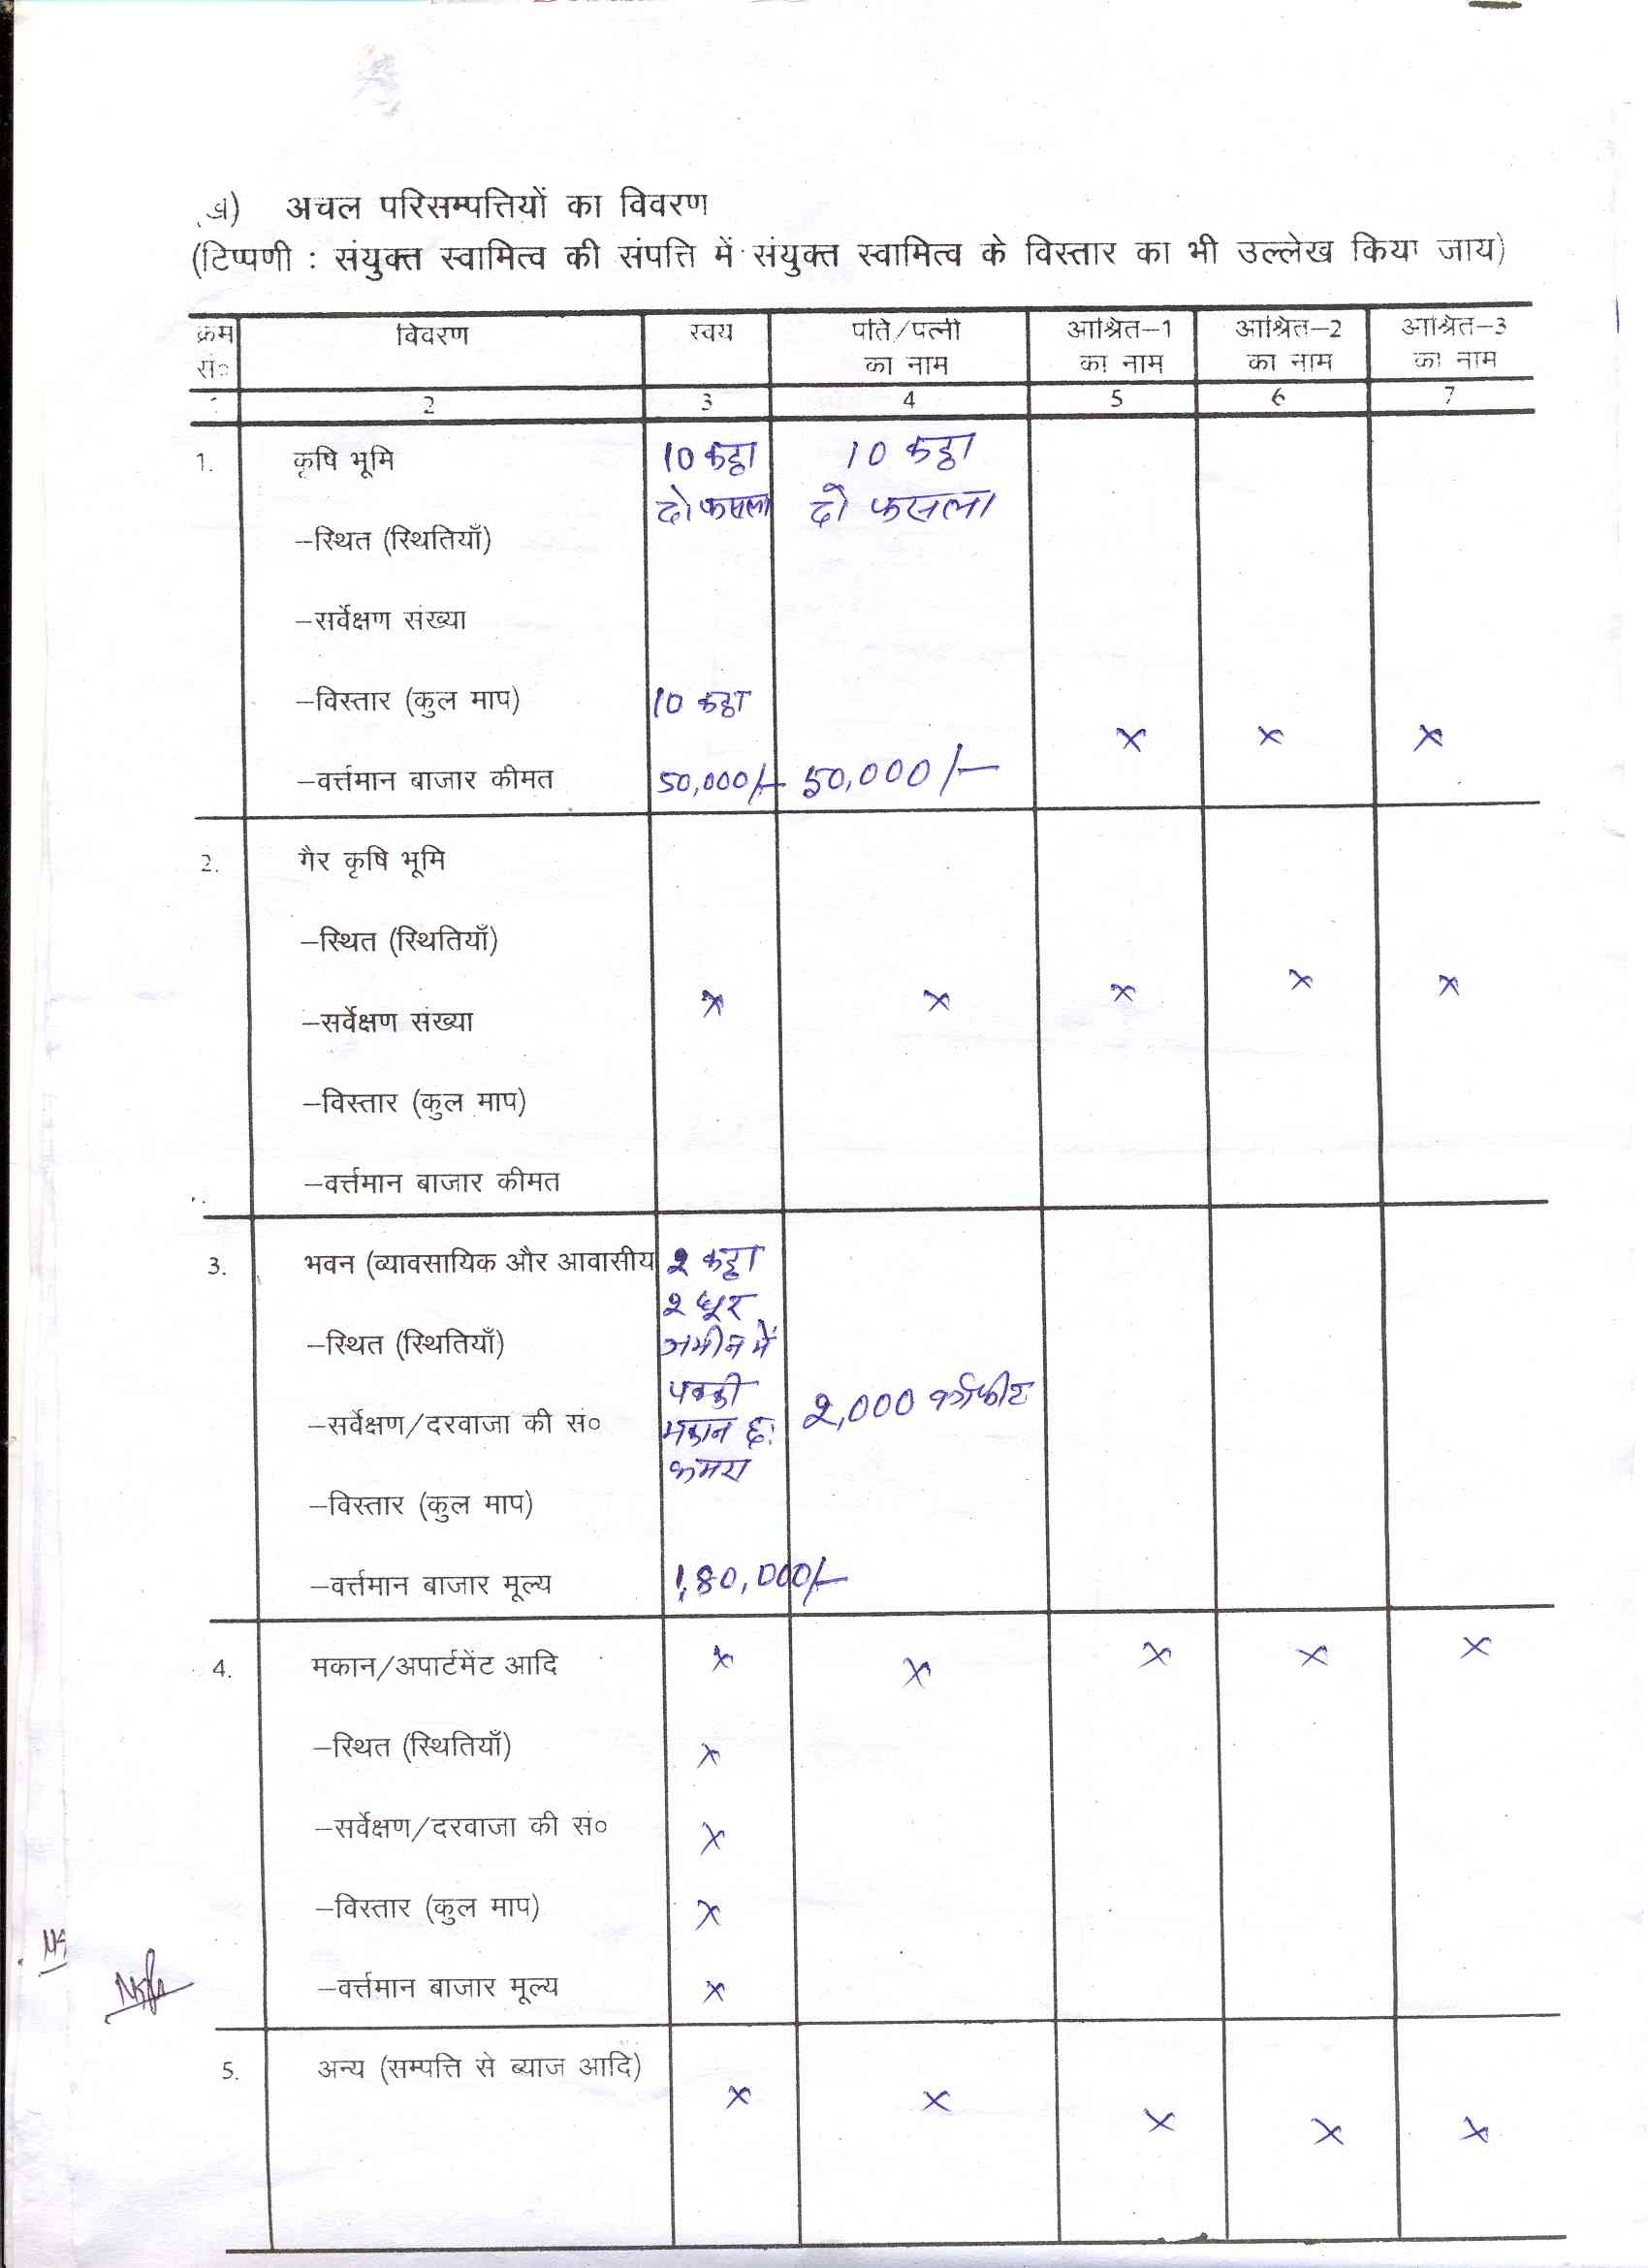 ख) अचल परिसम्पत्तियों का विवरण
(टिप्पणी : संयुक्त स्वामित्व की संपत्ति में संयुक्त स्वामित्व के विस्तार का भी उल्लेख किया जाय)
क्रम सं० विवरण स्वयं पति/पत्नी का नाम आश्रित–1 का नाम आश्रित–2 का नाम आश्रित–3 का नाम
2 3 4 5 6 7
1. कृषि भूमि 10 कट्ठा 10 कट्ठा
दो फसला दो फसला
–स्थित (स्थितियाँ)
–सर्वेक्षण संख्या
–विस्तार (कुल माप) 10 कट्ठा
x x x
–वर्त्तमान बाजार कीमत 50,000/- 50,000/-
2. गैर कृषि भूमि
–स्थित (स्थितियाँ)
–सर्वेक्षण संख्या x x x x x
–विस्तार (कुल माप)
–वर्त्तमान बाजार कीमत
3. भवन (व्यावसायिक और आवासीय 2 कट्ठा
2 धूर
–स्थित (स्थितियाँ) जमीन में
पक्की
–सर्वेक्षण/दरवाजा की सं० मकान छः 2,000 वर्गफीट
कमरा
–विस्तार (कुल माप)
–वर्त्तमान बाजार मूल्य 1,80,000/-
4. मकान/अपार्टमेंट आदि x x x x x
–स्थित (स्थितियाँ) x
–सर्वेक्षण/दरवाजा की सं० x
–विस्तार (कुल माप) x
–वर्त्तमान बाजार मूल्य x
5. अन्य (सम्पत्ति से ब्याज आदि)
x x x x x